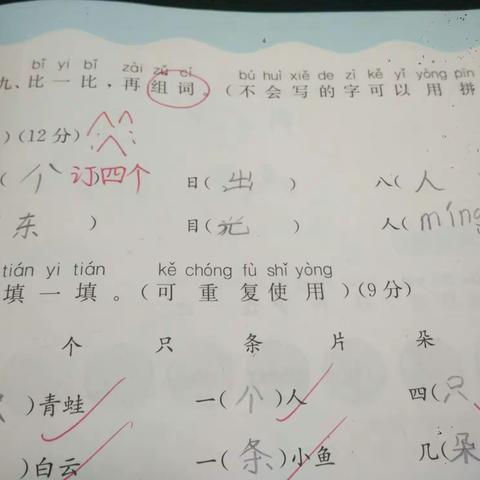 4
bǐ yi bǐ zài zǔ cí bú huì xiě de zì kě yǐ yòng pīn
九、比一比，再组词。（不会写的字可以用拼
）(12分)
（个 订四个 日（出 ） 八（人
东 ） 目（光 ） 人（míng
tián yi tián kě chóng fù shǐ yòng
填一填。（可重复使用）(9分)
个 只 条 片 朵
）青蛙 一（个）人 四（只
）白云 一（条）小鱼 几（朵